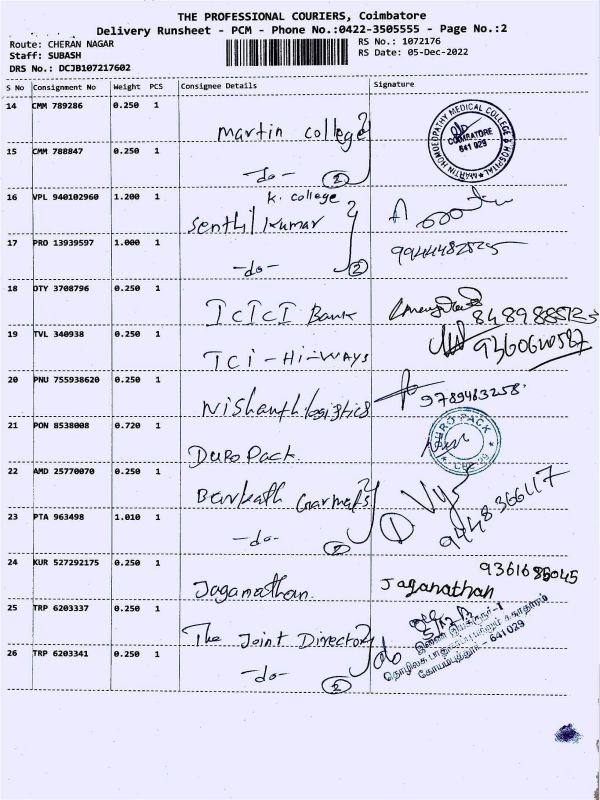 THE PROFESSIONAL COURIERS, Coimbatore
Delivery Runsheet - PCM - Phone No.:0422-3505555 - Page No.:2
Route: CHERAN NAGAR
RS No.: 1072176
Staff: SUBASH
RS Date: 05-Dec-2022
DRS No.: DCJB107217602
S No Consignment No Weight PCS Consignee Details Signature
14 CMM 789286 0.250 1
Martin college
MARTIN HOMOEOPATHY MEDICAL COLLEGE & HOSPITAL
COIMBATORE
641 029
15 CMM 788847 0.250 1
-do- 2
16 VPL 940102960 1.200 1
K. college
Senthil Kumar
17 PRO 13939597 1.000 1
-do- 2
9944482525
18 DTY 3708796 0.250 1
ICICI Bank
19 TVL 340938 0.250 1
TCI-Hi-WAYS
20 PNU 755938620 0.250 1
Nishanth logistics
9789463258
21 PON 8538008 0.720 1
Duro Pack.
DURO PACK
22 AMD 25770070 0.250 1
23 PTA 963498 1.010 1
-do- 2
24 KUR 527292175 0.250 1
Jaganathan.
Jaganathan
25 TRP 6203337 0.250 1
The Joint Director
26 TRP 6203341 0.250 1
-do- 2
641029